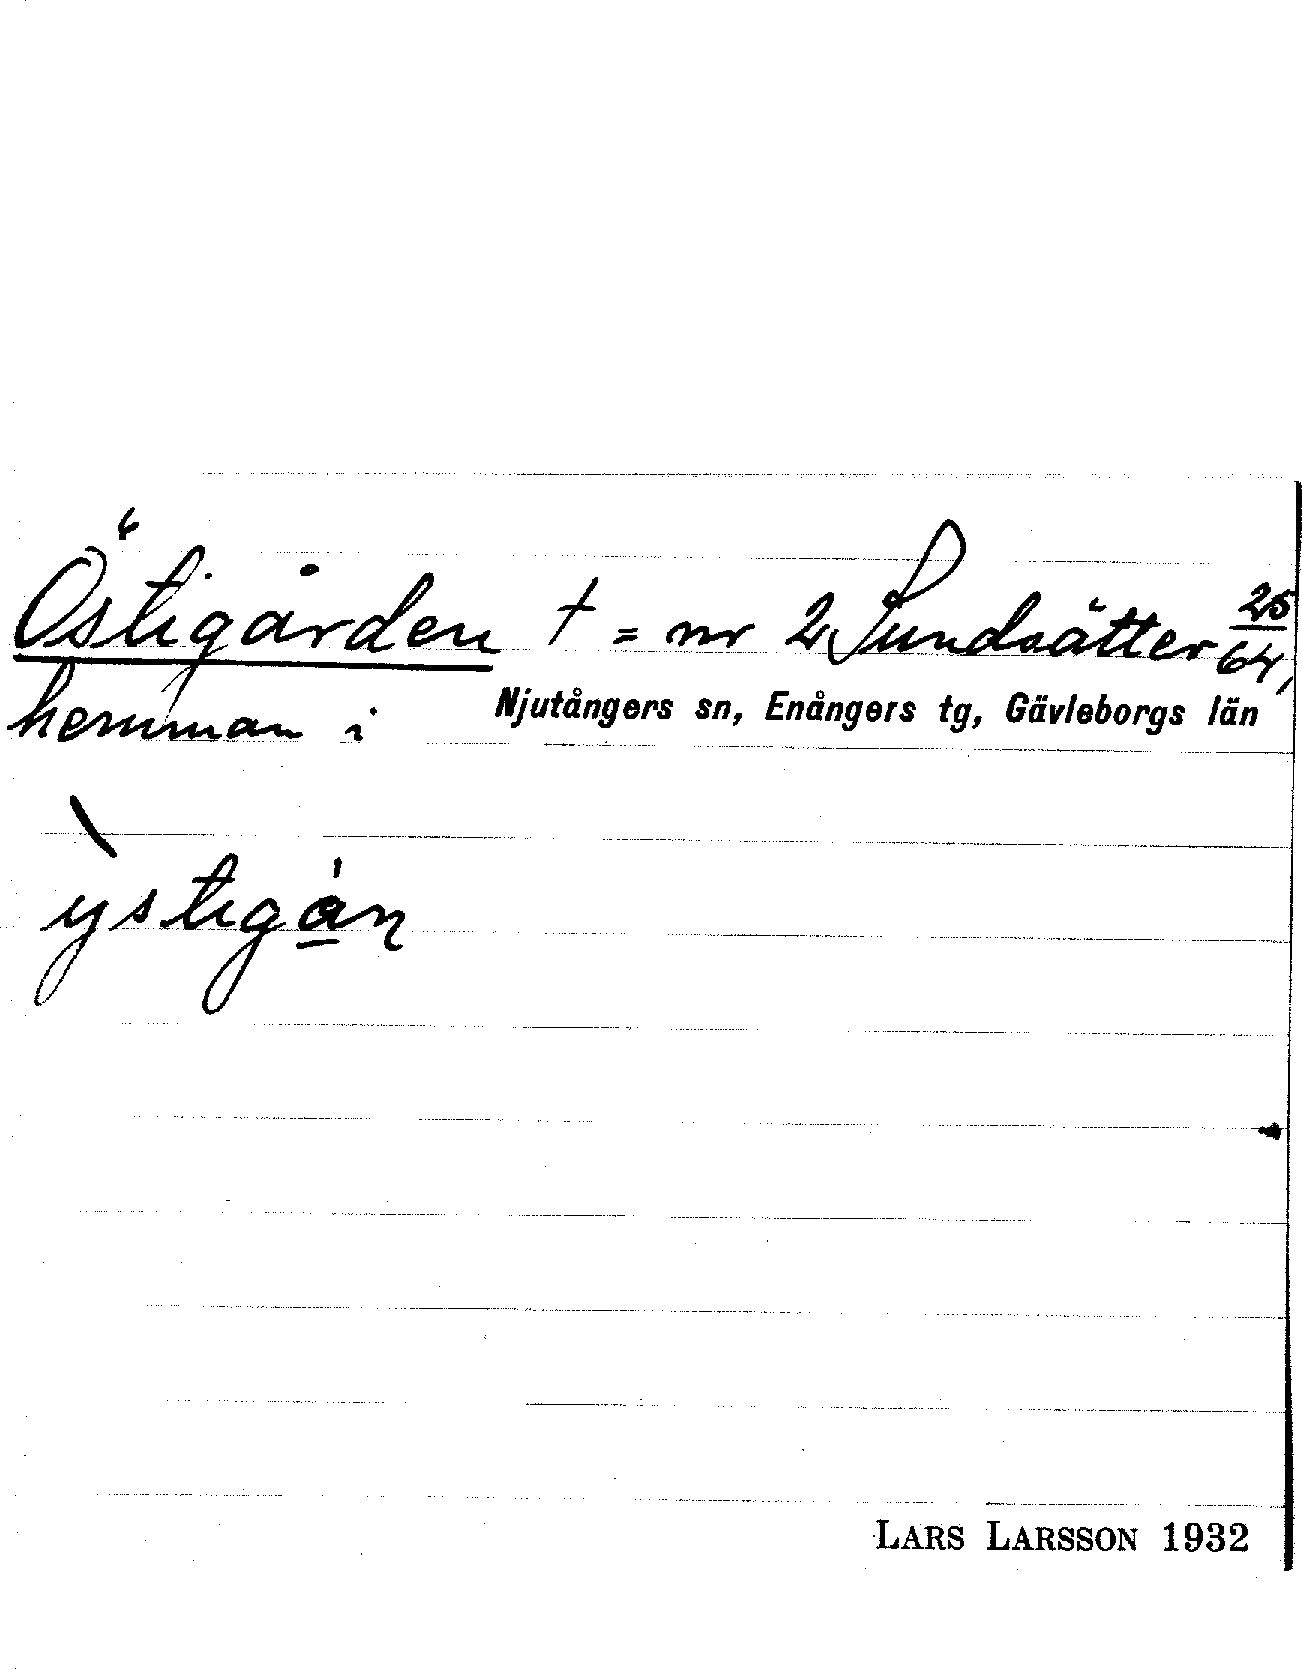 Östigården † = nr 2 Sundsätter 25/64,
hemman i Njutångers sn, Enångers tg, Gävleborgs län
\
ystigån
LARS LARSSON 1932